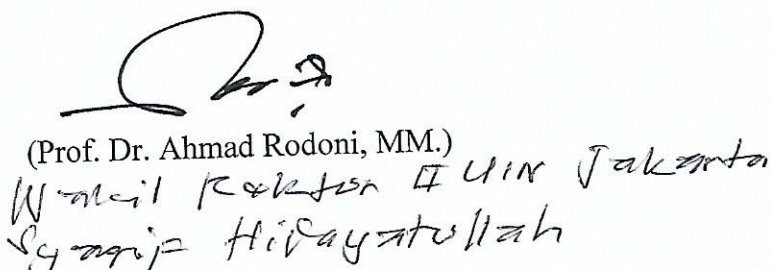 (Prof. Dr. Ahmad Rodoni, MM.)
Wakil Rektor II UIN Jakarta
Syarif Hidayatullah